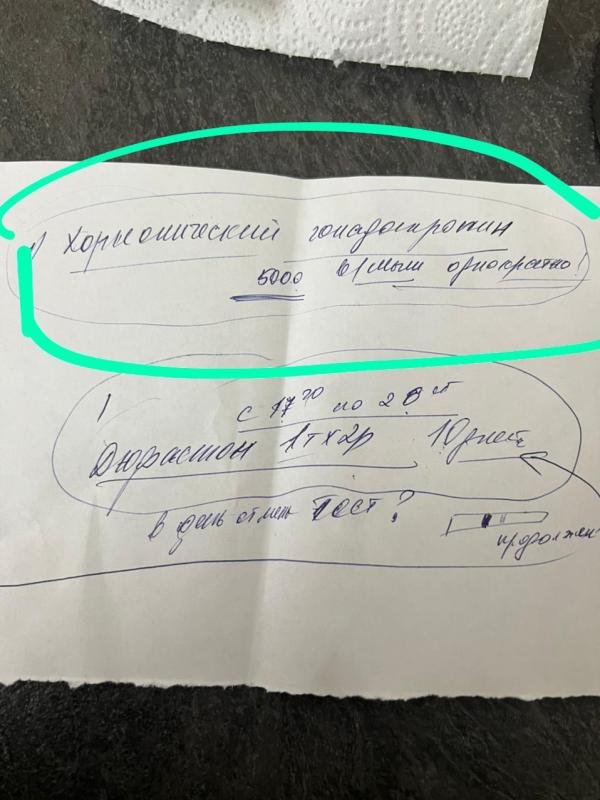 1) Хорионический гонадотропин
5000 в/мыш однократно!
1
с 17го по 26й
Дюфастон 1т х 2р 10 дней
В день отмены тест?
продолжен